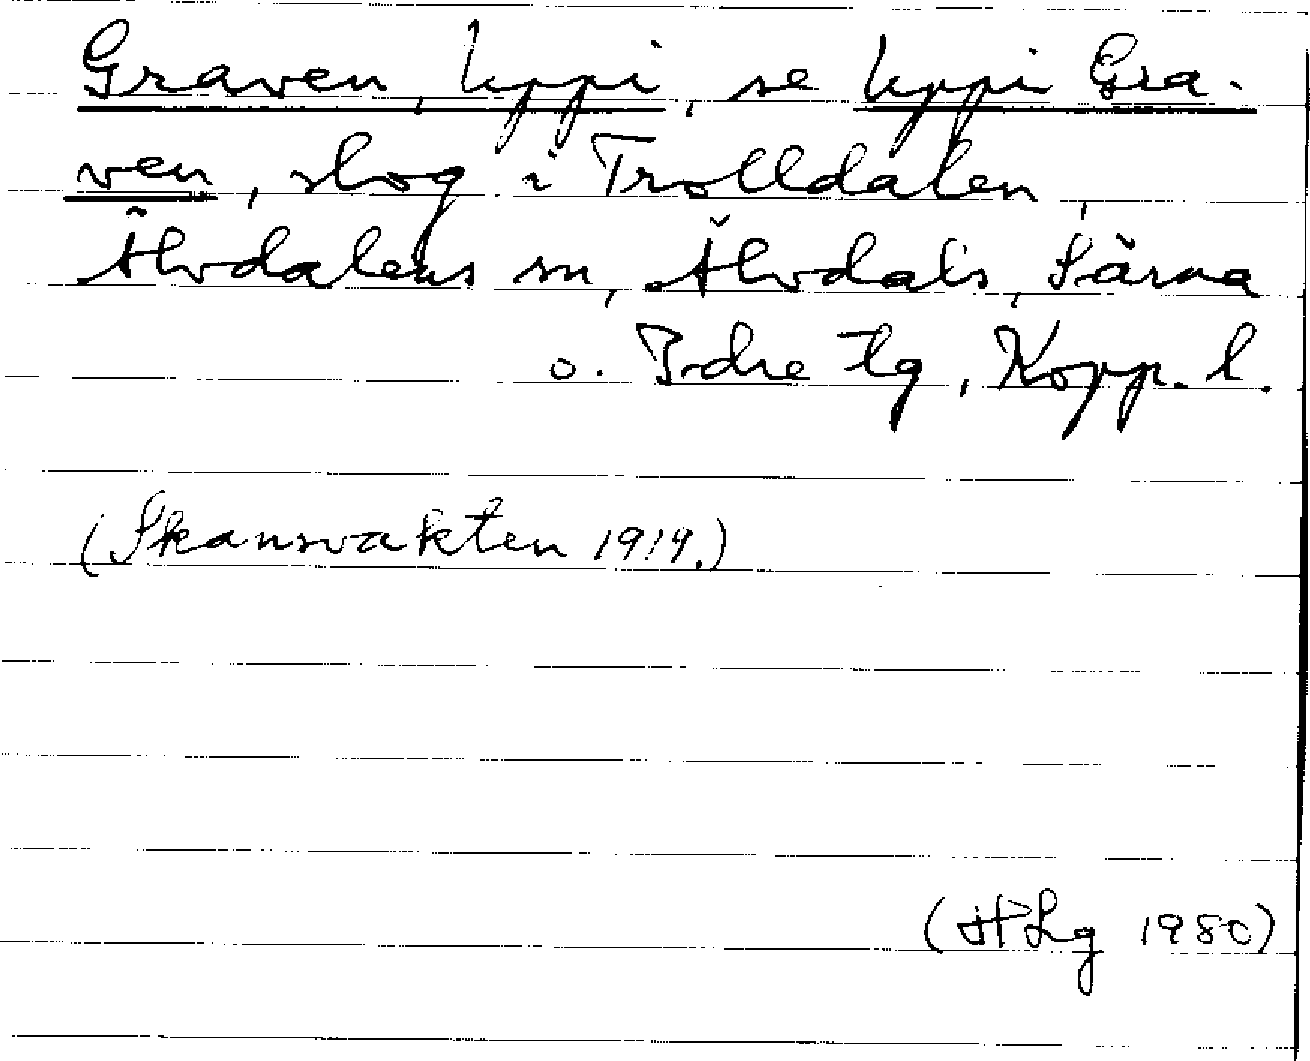 Graven, Uppi, se Uppi Gra-
ven, skog i Trolldalen,
Älvdalens sn, Älvdals, Särna
o. Idre tg, Kopp. l.
(Skansvakten 1919.)
1980)